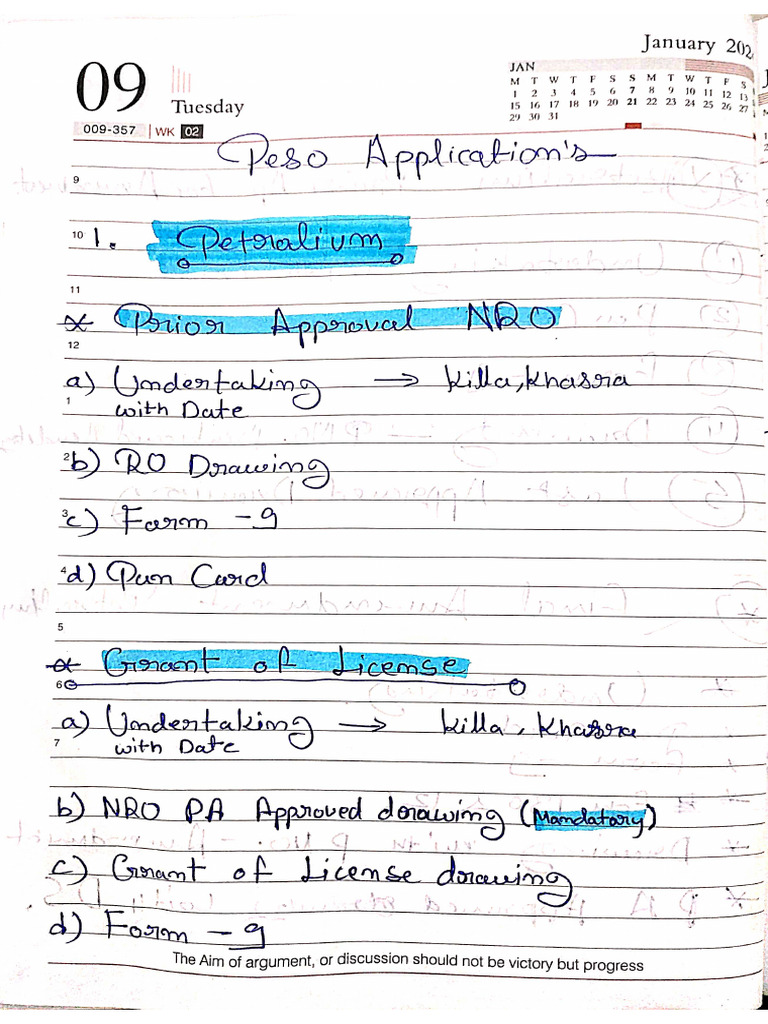 January 202
09
Tuesday
JAN
M T W T F S S M T W T F S
1 2 3 4 5 6 7 8 9 10 11 12 13
15 16 17 18 19 20 21 22 23 24 25 26 27
29 30 31
009-357 | WK 02
Peso Application's
9
10 1. Petralium
11
* Prior Approval NRO
12
a) Undertaking → Killa, Khasra
1 with Date
2 b) RO Drawing
3 c) Form - 9
4 d) Pan Card
5
* Grant of License
6
a) Undertaking → Killa, Khasra
7 with Date
b) NRO PA Approved drawing (Mandatory)
c) Grant of License drawing
d) Form - 9
The Aim of argument, or discussion should not be victory but progress